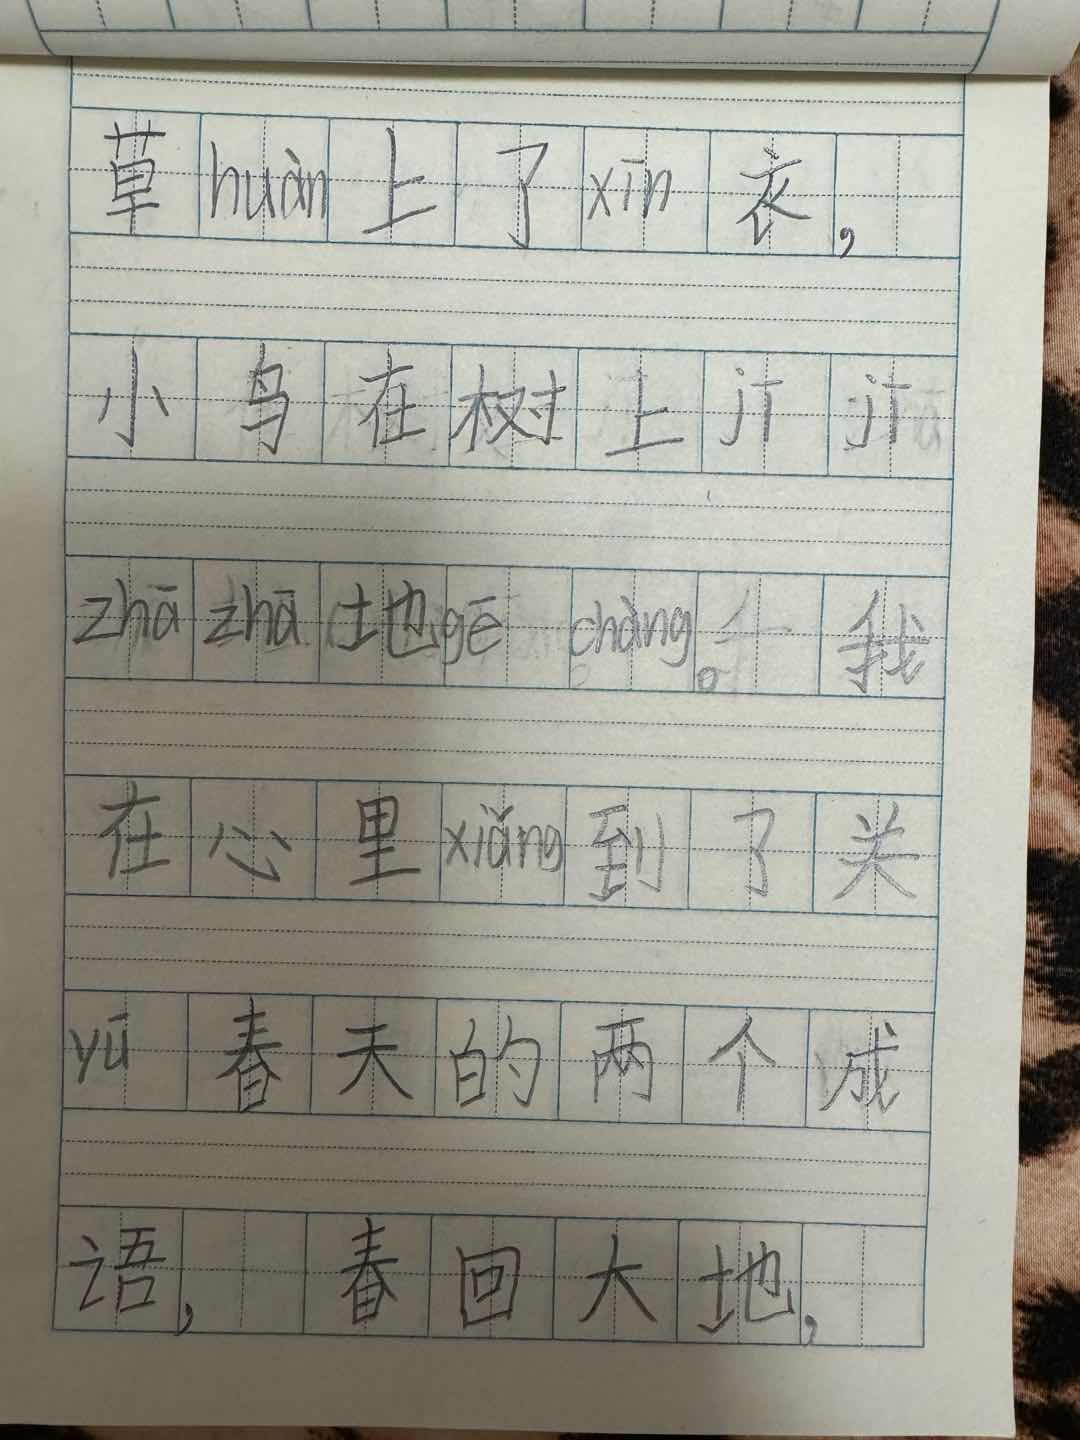 草huàn上了xīn衣，
小鸟在树上jī jī
zhā zhā地gē chàng。我
在心里xiǎng到了关
yū春天的两个成
语，春回大地，